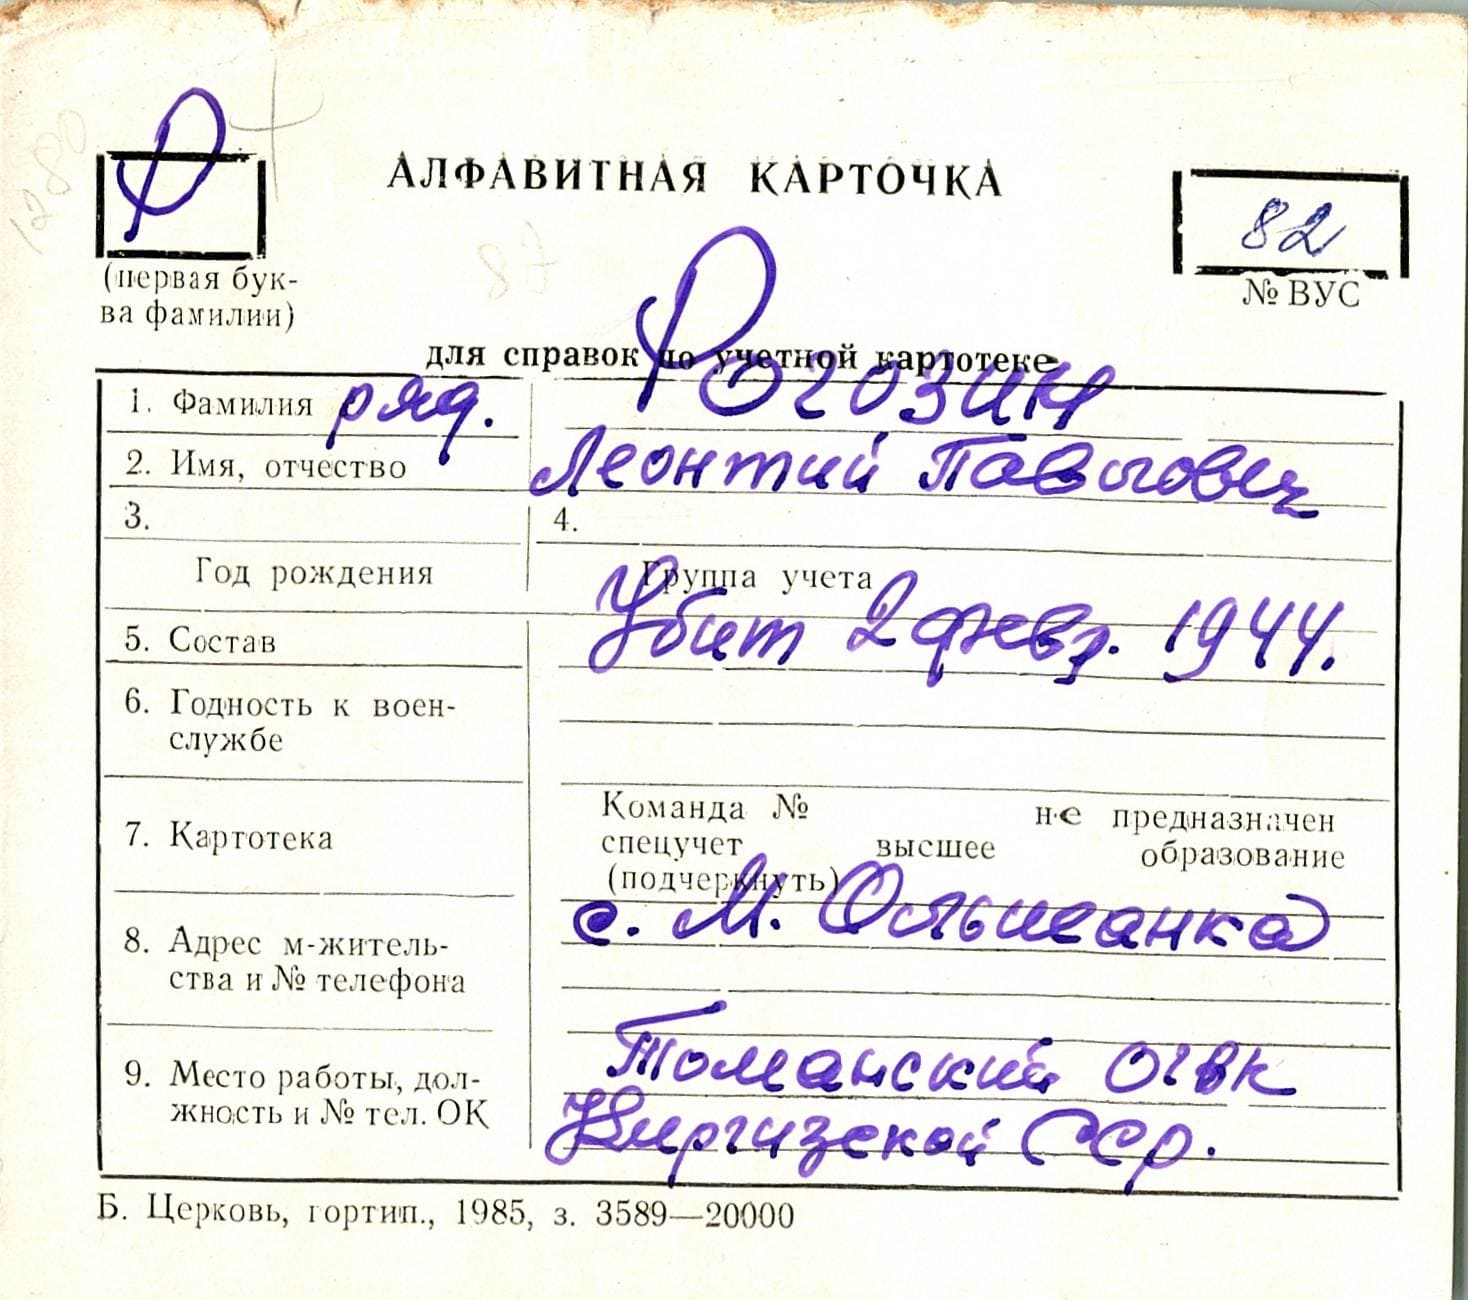 Р
АЛФАВИТНАЯ КАРТОЧКА
82
(первая бук-
ва фамилии)
№ ВУС
87
для справок по учетной картотеке
1. Фамилия ряд. Рогозин
2. Имя, отчество Леонтий Павлович
3. 4.
Год рождения Группа учета
Убит 2 февр. 1944.
5. Состав
6. Годность к воен-
службе
7. Картотека
Команда № не предназначен
спецучет высшее образование
(подчеркнуть)
8. Адрес м-житель-
ства и № телефона
с. М. Ольшанка
9. Место работы, дол-
жность и № тел. ОК
ОГВК
Киргизской ССР.
Б. Церковь, гортип., 1985, з. 3589—20000